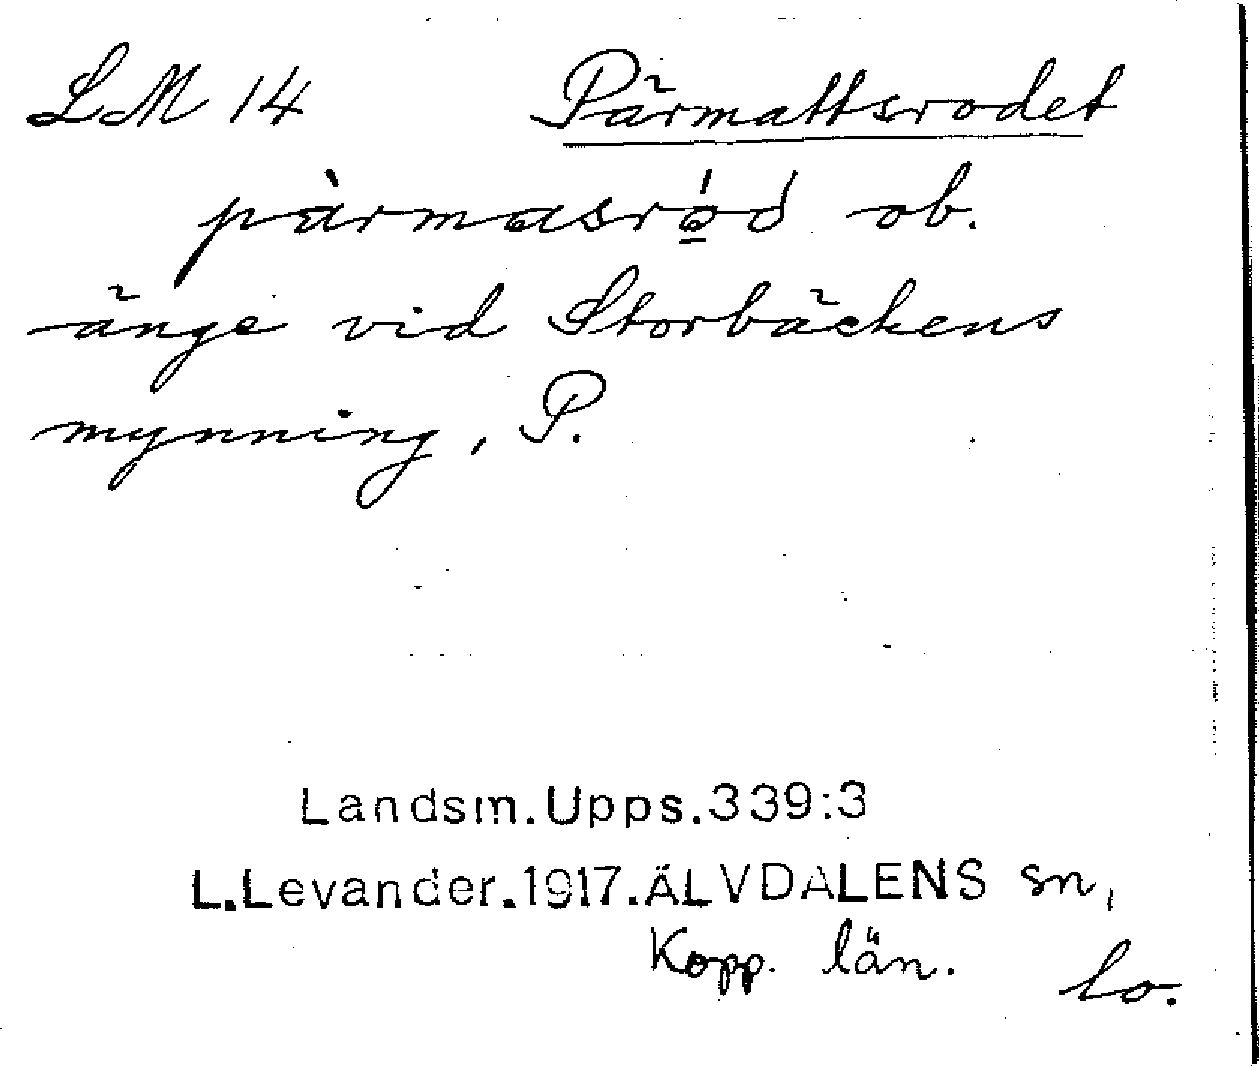 LM 14 Pärmattsrodet
pàrmasrǫ́d ob.
änge vid Storbäckens
mynning, P.
Landsm.Upps.339:3
L.Levander.1917.ÄLVDALENS sn,
Kopp. län.
lo.